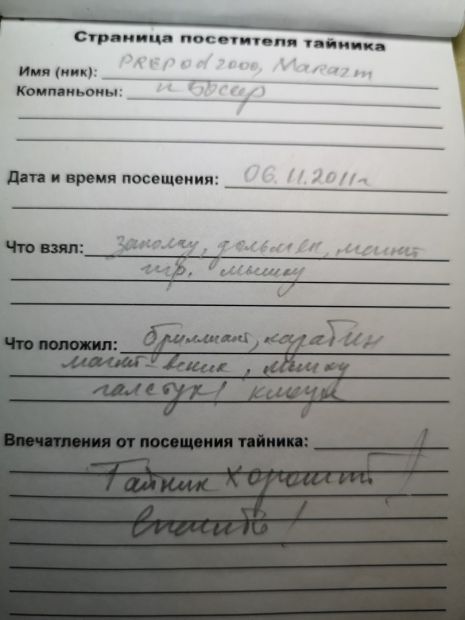 Страница посетителя тайника
Имя (ник): PREPOD2000, Marazm
Компаньоны: и Бисер
Дата и время посещения: 06.11.2011г
Что взял: заколку, дольмен, магнит
игр. мышку
Что положил: бриллиант, карабин
магнит-веник, мышку
галстук, клоун
Впечатления от посещения тайника:
Тайник хороший!